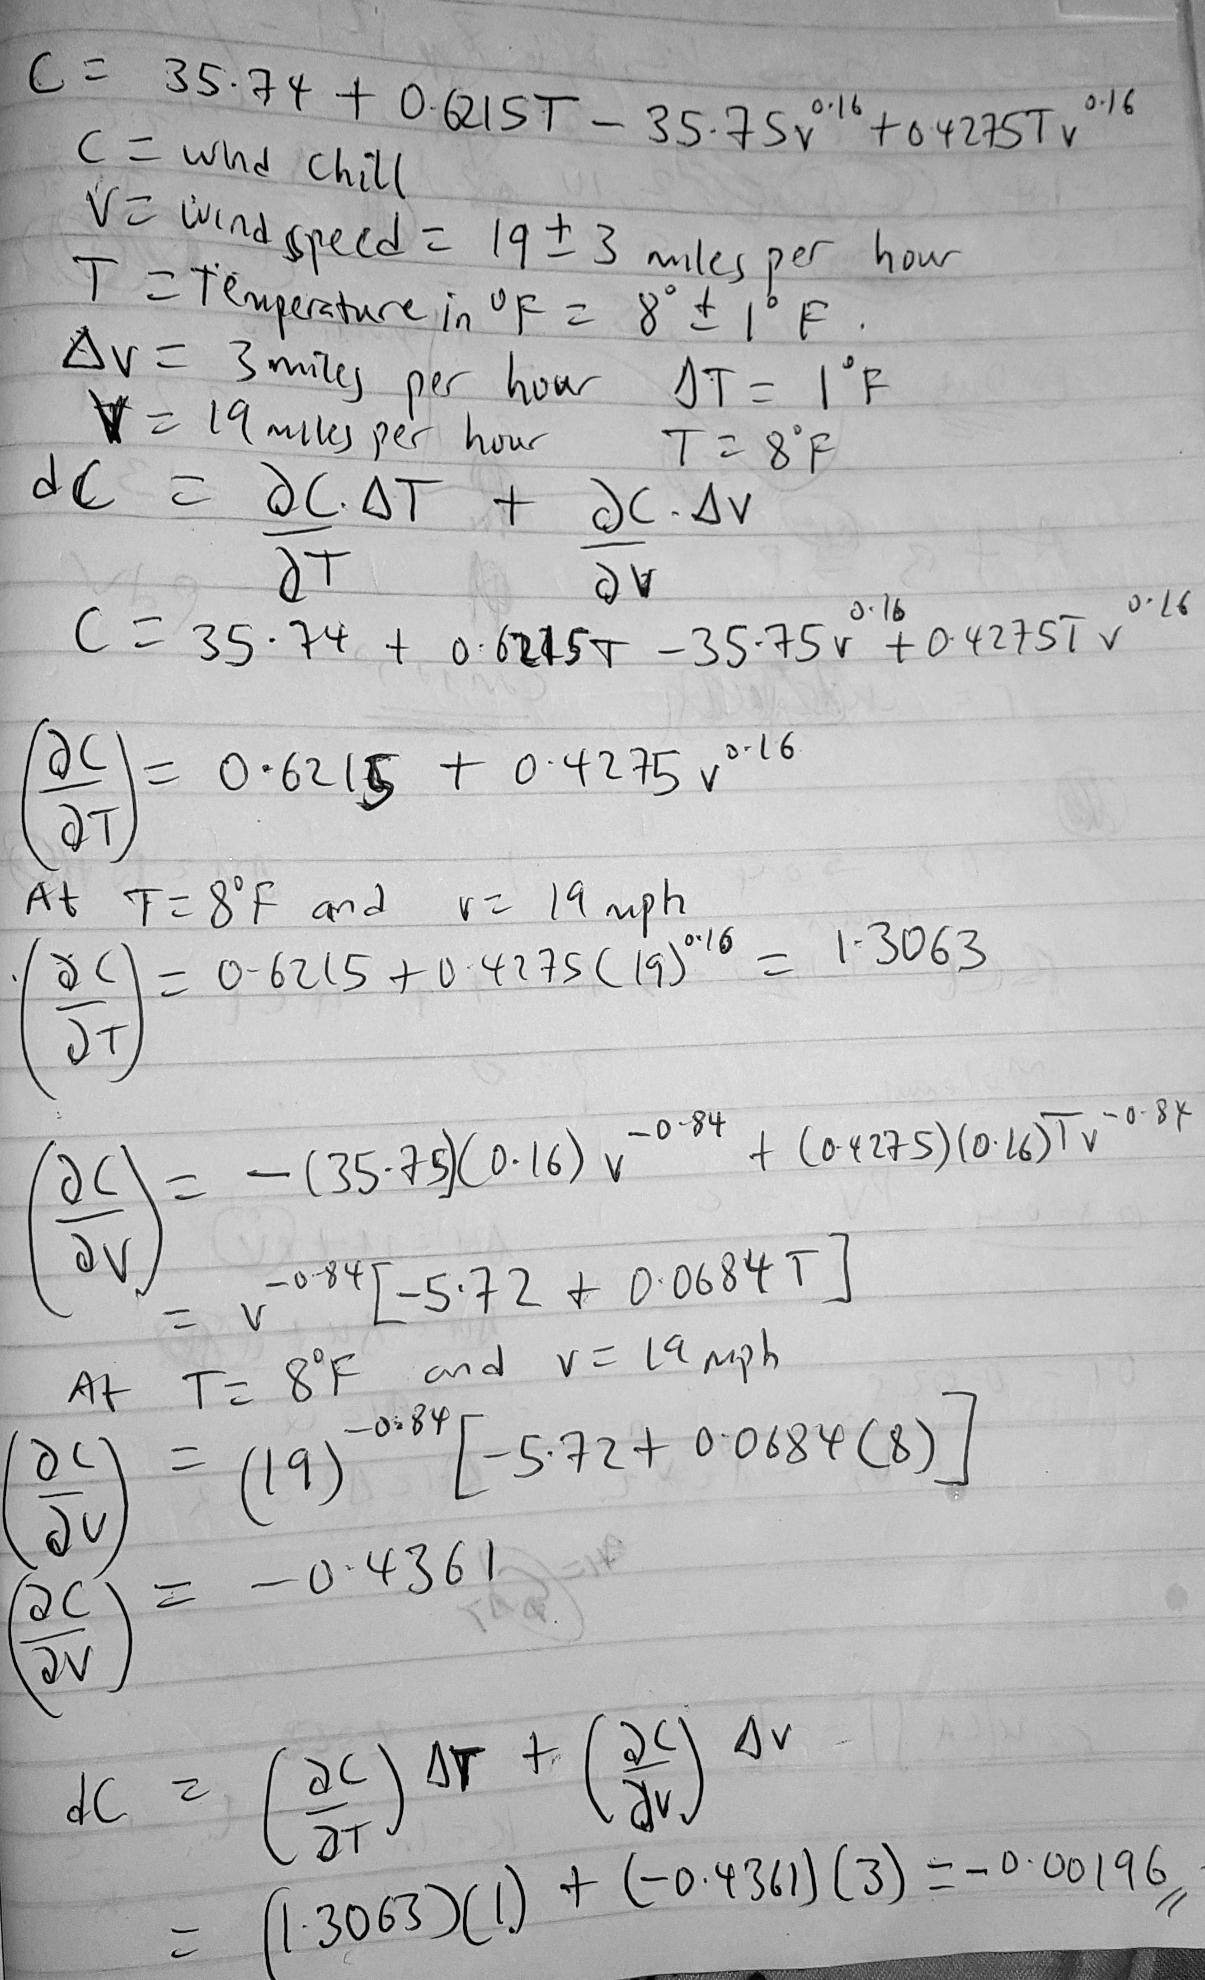 C = 35.74 + 0.6215T - 35.75v^0.16 + 0.4275Tv^0.16
C = wind chill
V = wind speed = 19 ± 3 miles per hour
T = Temperature in °F = 8° ± 1° F.
Δv = 3 miles per hour ΔT = 1°F
V = 19 miles per hour T = 8°F
dC = ∂C/∂T . ΔT + ∂C/∂V . ΔV
C = 35.74 + 0.6215T - 35.75v^0.16 + 0.4275Tv^0.16
(∂C/∂T) = 0.6215 + 0.4275v^0.16
At T = 8°F and v = 19 mph
(∂C/∂T) = 0.6215 + 0.4275(19)^0.16 = 1.3063
(∂C/∂V) = -(35.75)(0.16)v^-0.84 + (0.4275)(0.16)Tv^-0.84
= v^-0.84[-5.72 + 0.0684T]
At T = 8°F and v = 19 mph
(∂C/∂V) = (19)^-0.84[-5.72 + 0.0684(8)]
(∂C/∂V) = -0.4361
dC = (∂C/∂T) ΔT + (∂C/∂V) ΔV
= (1.3063)(1) + (-0.4361)(3) = -0.00196